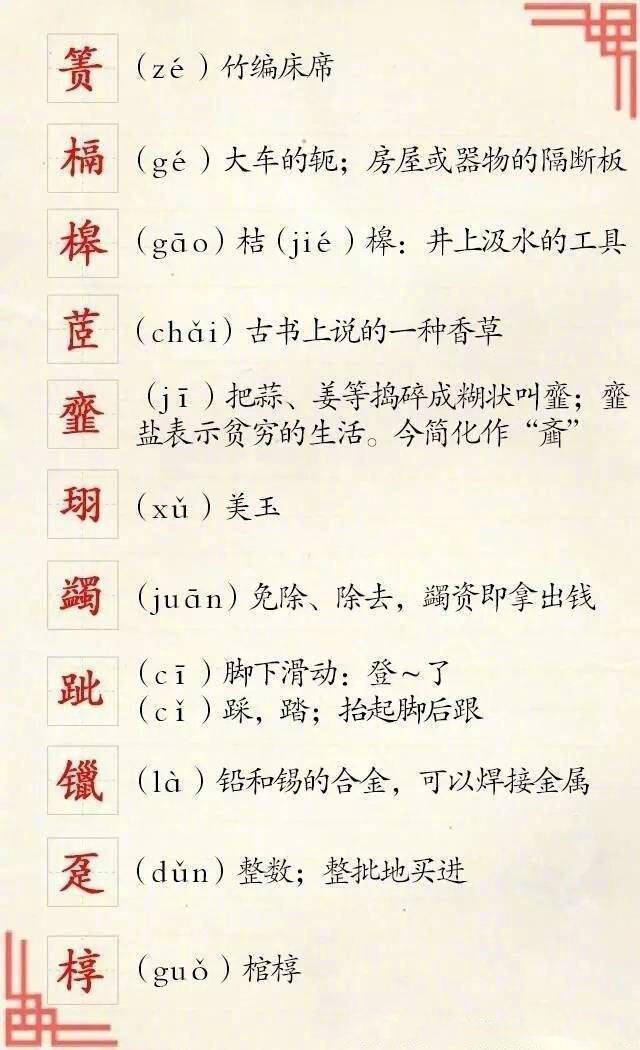 箦 （zé）竹编床席
槅 （gé）大车的轭；房屋或器物的隔断板
槔 （gāo）桔（jié）槔：井上汲水的工具
茝 （chǎi）古书上说的一种香草
齑 （jī）把蒜、姜等捣碎成糊状叫齑；齑
盐表示贫穷的生活。今简化作“齑”
珝 （xǔ）美玉
蠲 （juān）免除、除去，蠲资即拿出钱
跐 （cī）脚下滑动：登～了
（cǐ）踩，踏；抬起脚后跟
镴 （là）铅和锡的合金，可以焊接金属
趸 （dǔn）整数；整批地买进
椁 （guǒ）棺椁